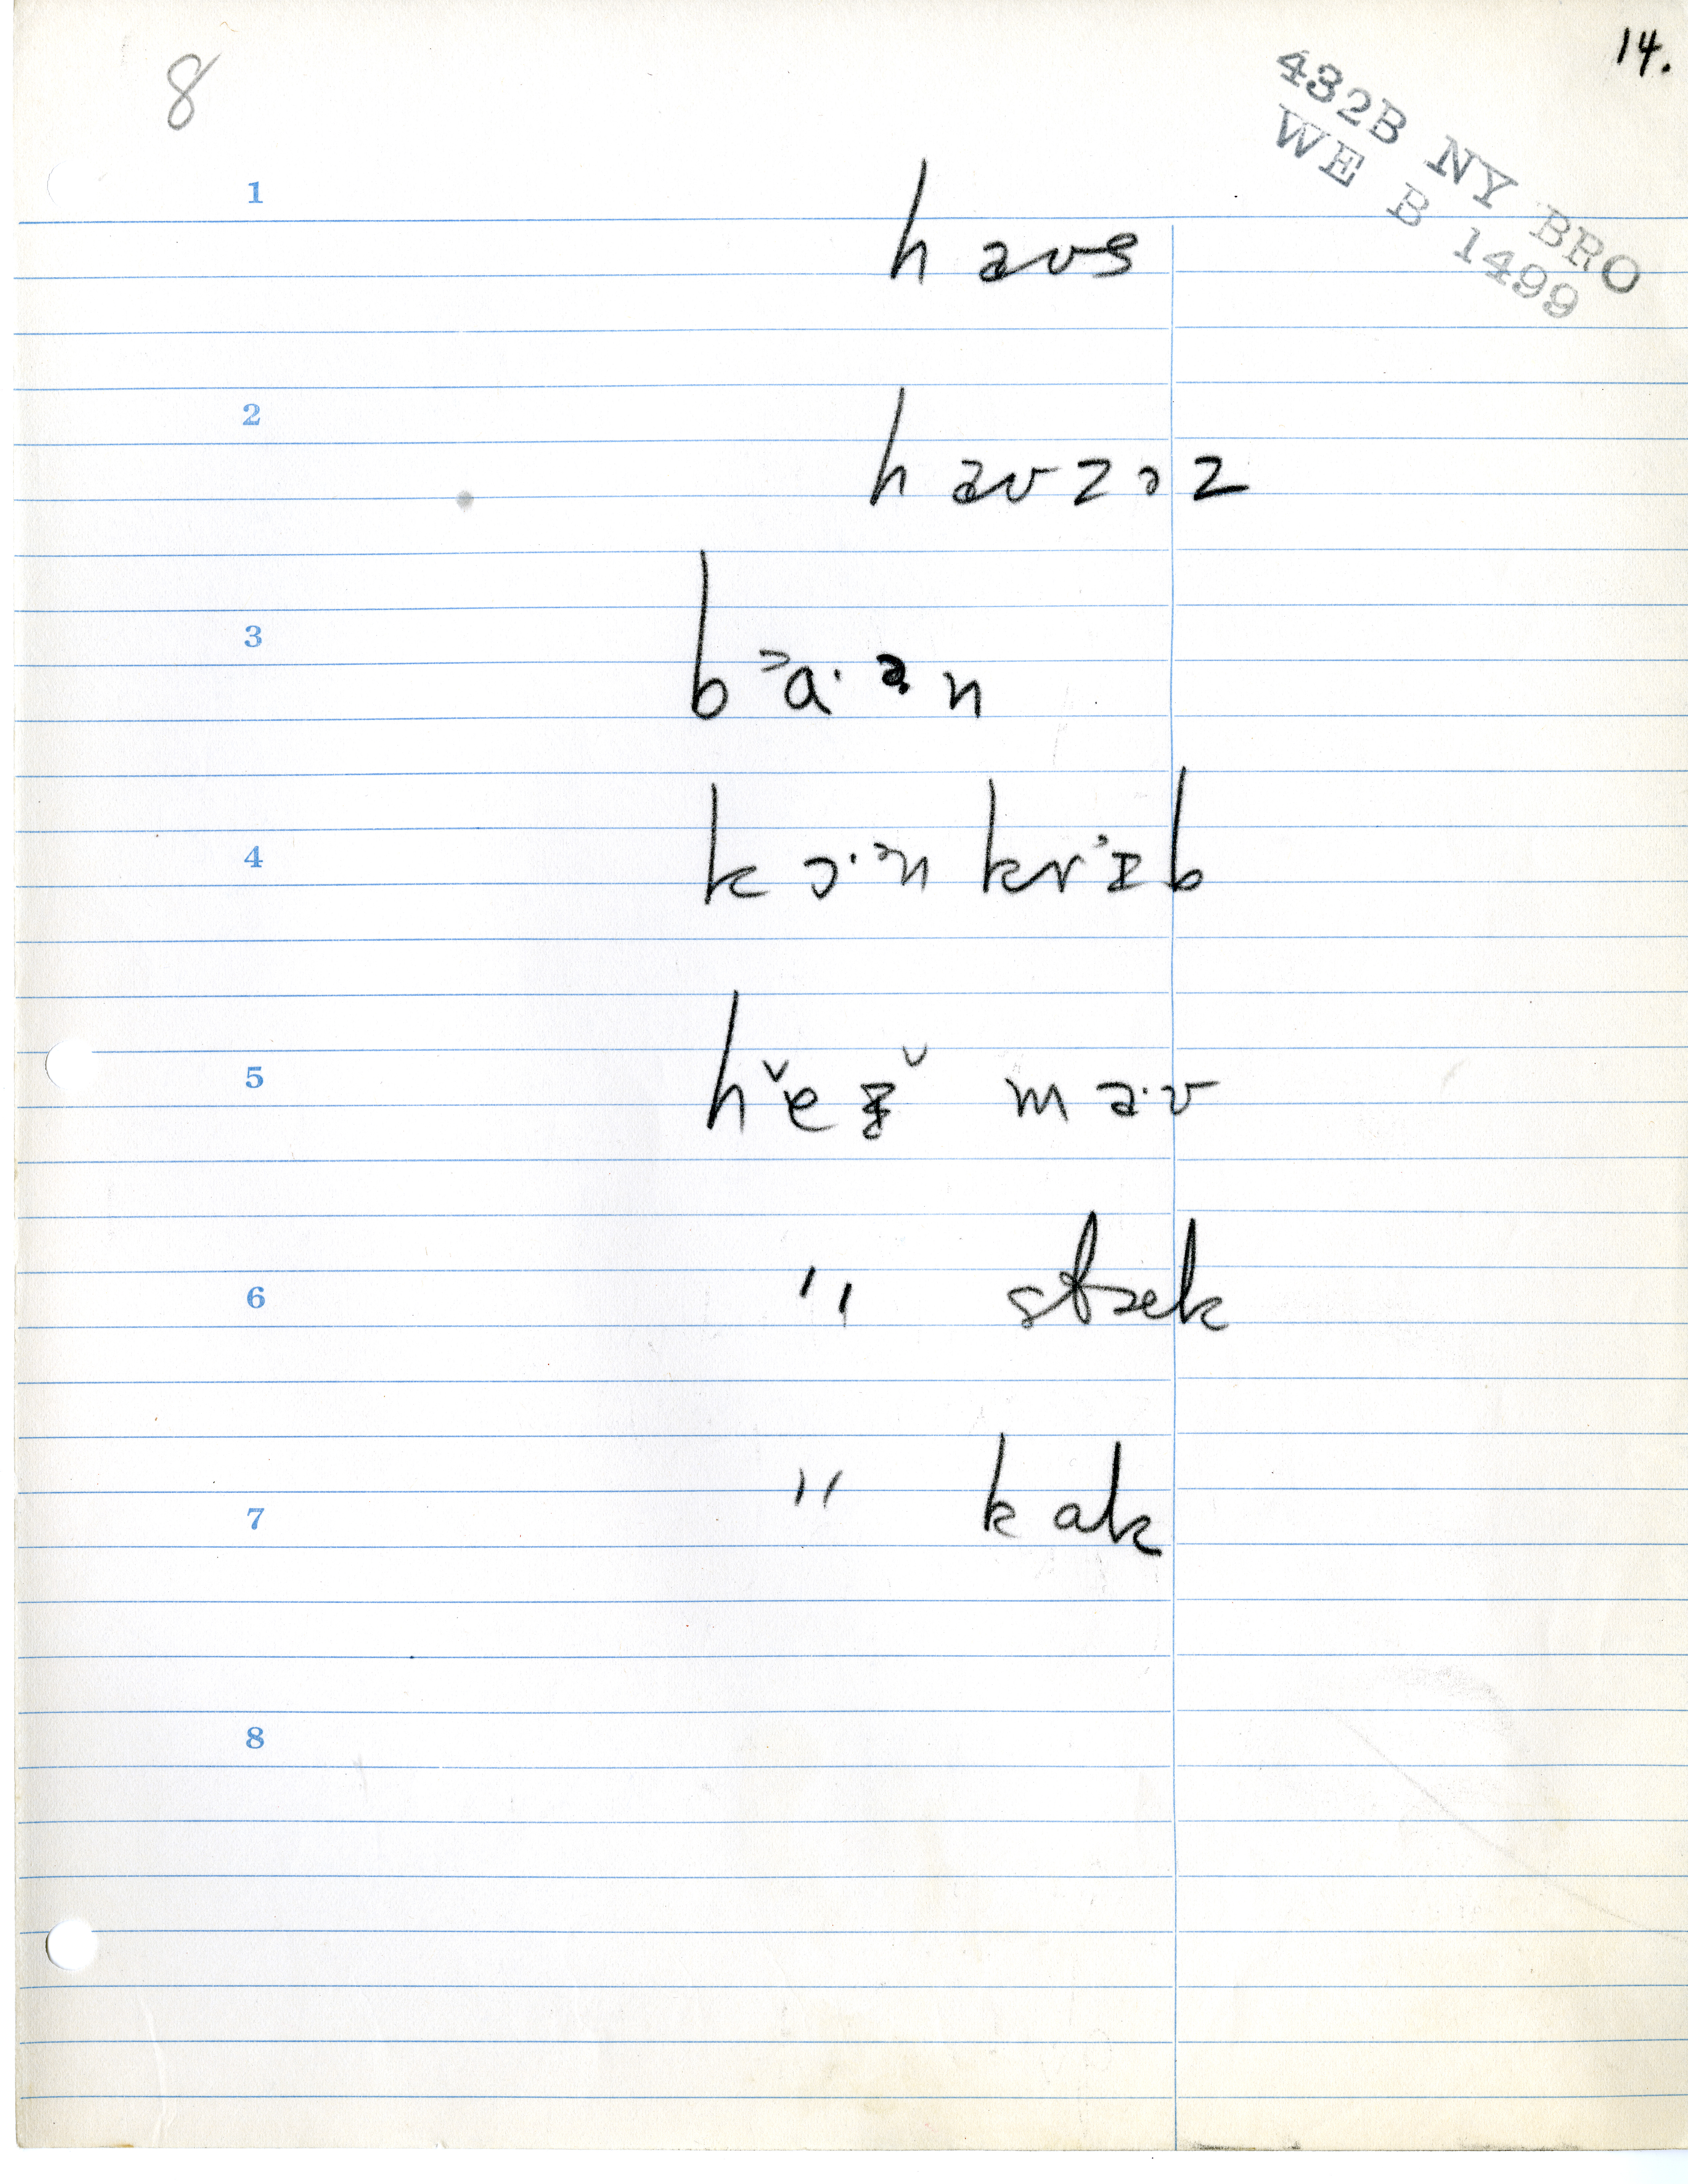 8
14.
432B NY BRO
WE B 1499
1 haʊs
2 haʊzəz
3 bᵊa·ə̣n
4 kɔ·ᵊn krᵊɪb
5 hěɪ̌ ma·ʊ
6 " stæk
7 " kak
8